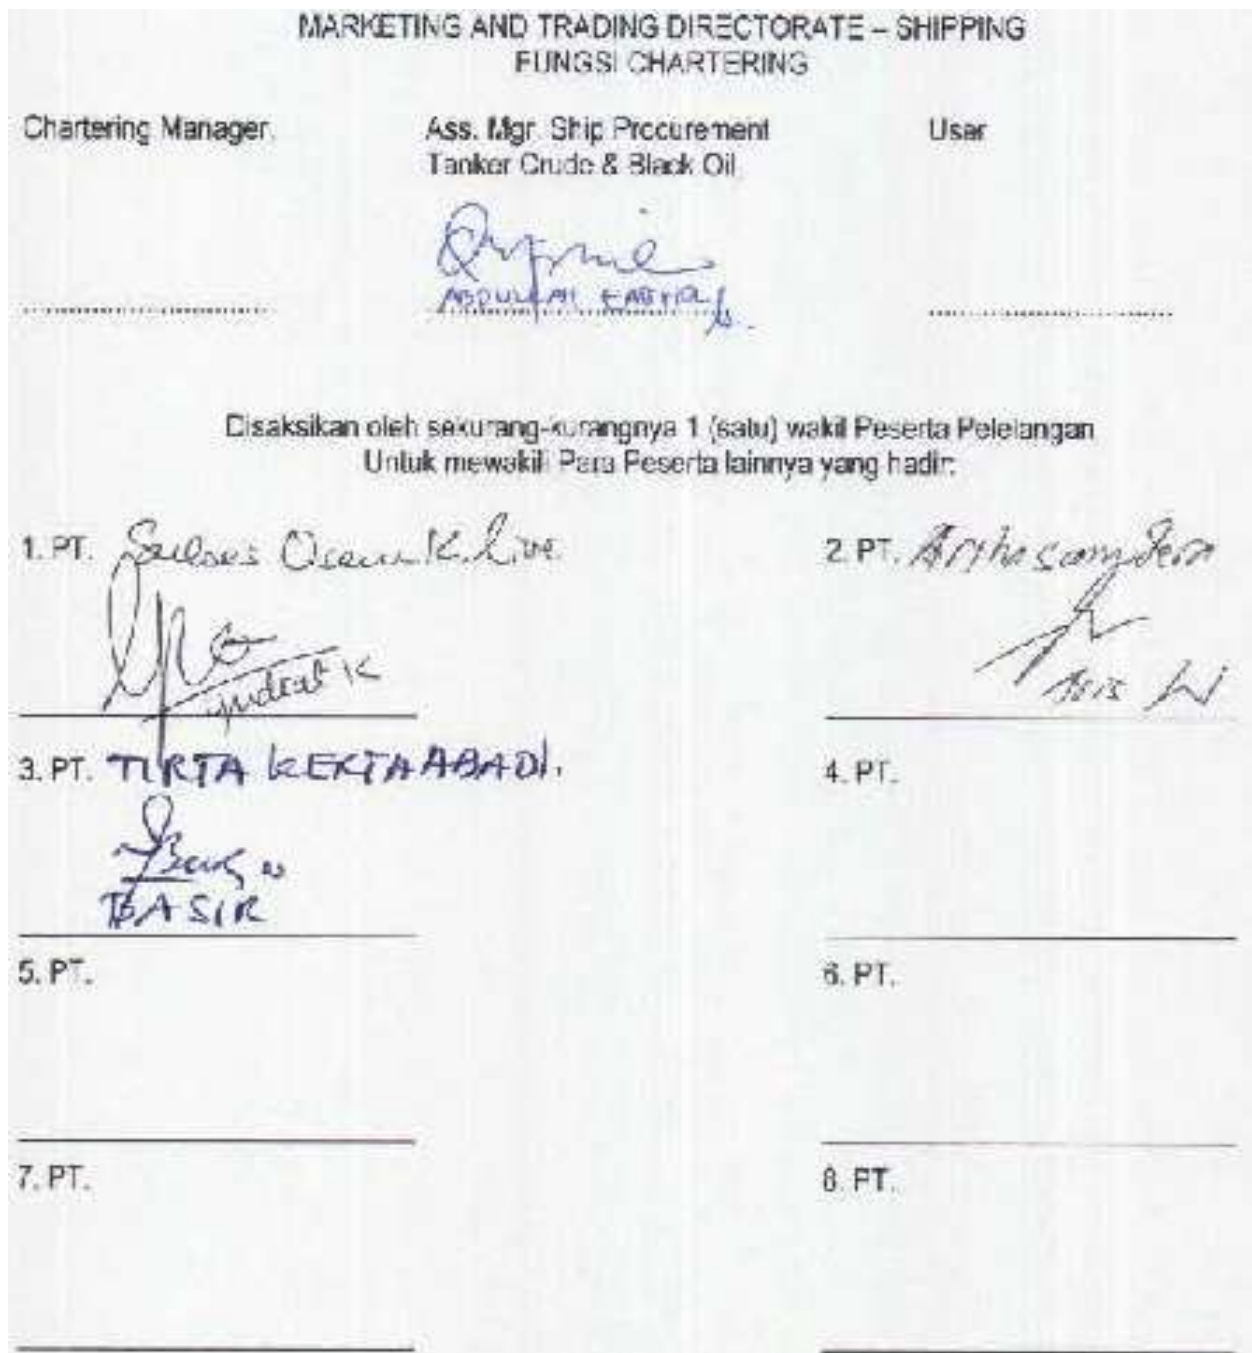 MARKETING AND TRADING DIRECTORATE – SHIPPING
FUNGSI CHARTERING
Chartering Manager,
Ass. Mgr. Ship Procurement
Tanker Crude & Black Oil
User
ABDULLAH
Disaksikan oleh sekurang-kurangnya 1 (satu) wakil Peserta Pelelangan
Untuk mewakili Para Peserta lainnya yang hadir:
1. PT. Line
2. PT.
K
3. PT. TIRTA KERTA ABADI.
4. PT.
BASIR
5. PT.
6. PT.
7. PT.
8. PT.